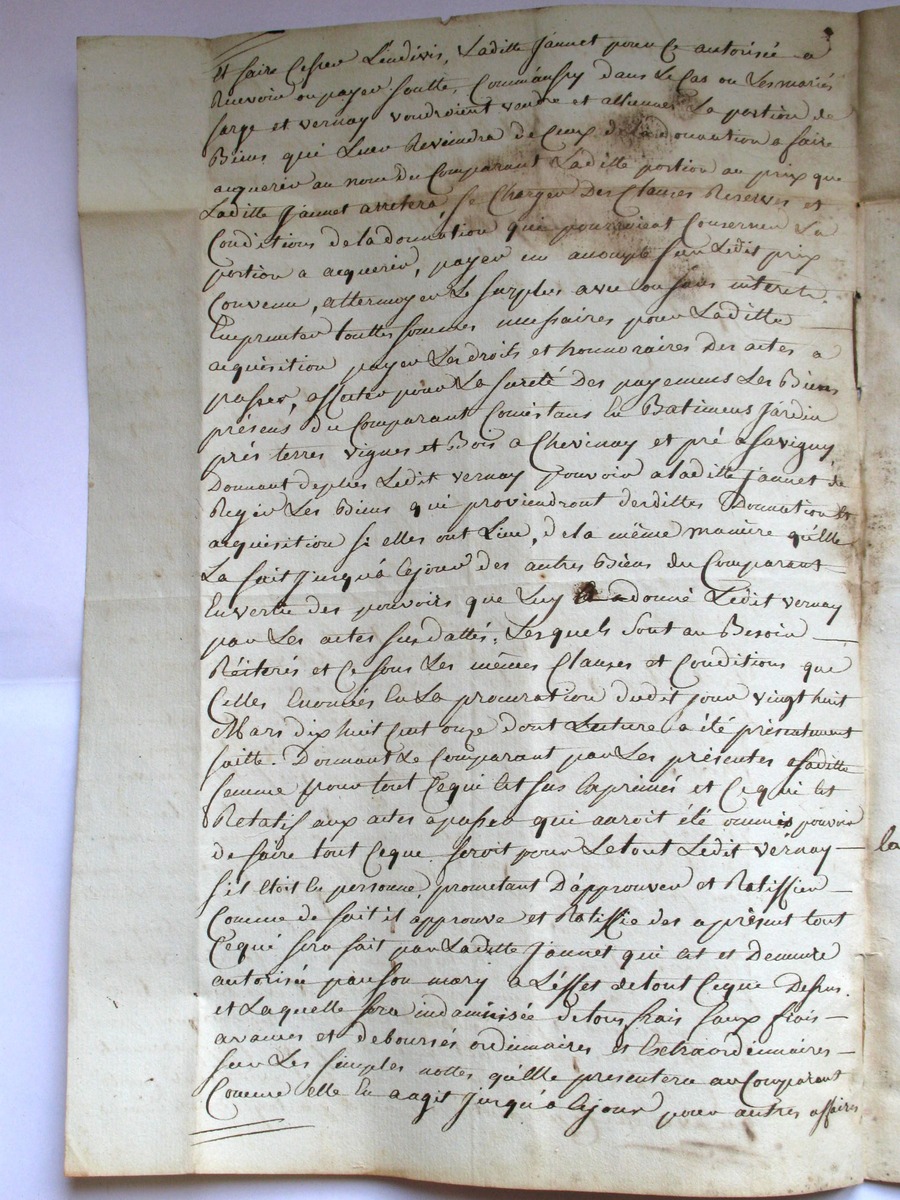 Et faire Cesser L'indivis, Laditte Jannet pour Ce autorisée a
Recevoir ou payer soulte, Comme aussy dans Le Cas ou Les mariés
farge et vernay voudroient vendre et alliener La portion de
Biens qui Leur Reviendra de Ceux de la donnation a faire
acquerir au nom du Comparant Laditte portion au prix que
Laditte Jannet arretera se Charger Des Clauses Reserves et
Conditions de la donnation qui pourroient Conserner La
portion a acquerir, payer un accompte sur Ledit prix
Convenu, attermoyer Le surplus avec ou sans interets.
Emprunter touttes sommes necessaires pour Laditte
acquisition payer Les droits et honnoraires Des actes a
passer, affecter pour La sureté Des payemens Les Biens
présens du Comparant Consistans En Batimens Jardin
prés terres vignes et Bois a Chevinay et pré a Savigny
Donnant deplus Ledit vernay pouvoir a laditte Jannet de
Regir Les Biens qui proviendront desdittes Donnation et
acquisition si elles ont Lieu, de la même manière qu'Elle
La fait Jusqu'à Cejour des autres Biens du Comparant
En vertu des pouvoirs que Luy a donné Ledit vernay
par Les actes susdattés, Lesquels sont au Besoin
Réiterés et Ce sous Les mêmes Clauses et Conditions que
Celles Enoncées En La procuration dudit jour vingt huit
Mars dix huit cent onze dont Lecture a été présentement
faitte. Donnant Le Comparant par Les présentes a saditte
femme pour tout Cequi Est sus Exprimés et Cequi Est
Relatif aux actes a passer qui auroit été ommis pouvoir
de faire tout Ceque feroit pour Le tout Ledit vernay
s'il Etoit En personne, promettant D'approuver et Ratiffier
Comme de fait il approuve et Ratiffie des aprésent tout
Cequi sera fait par Laditte Jannet qui Est et Demeure
autorisée par son mary a L'effet de tout Ceque Dessus.
et Laquelle sera indamnisée de tous frais faux frais
avances et deboursés ordinnaires et Extraordinnaires
sur Les simples nottes qu'Elle presentera au Comparant
Comme elle En a agit Jusqu'a Cejour pour autres affaires
la